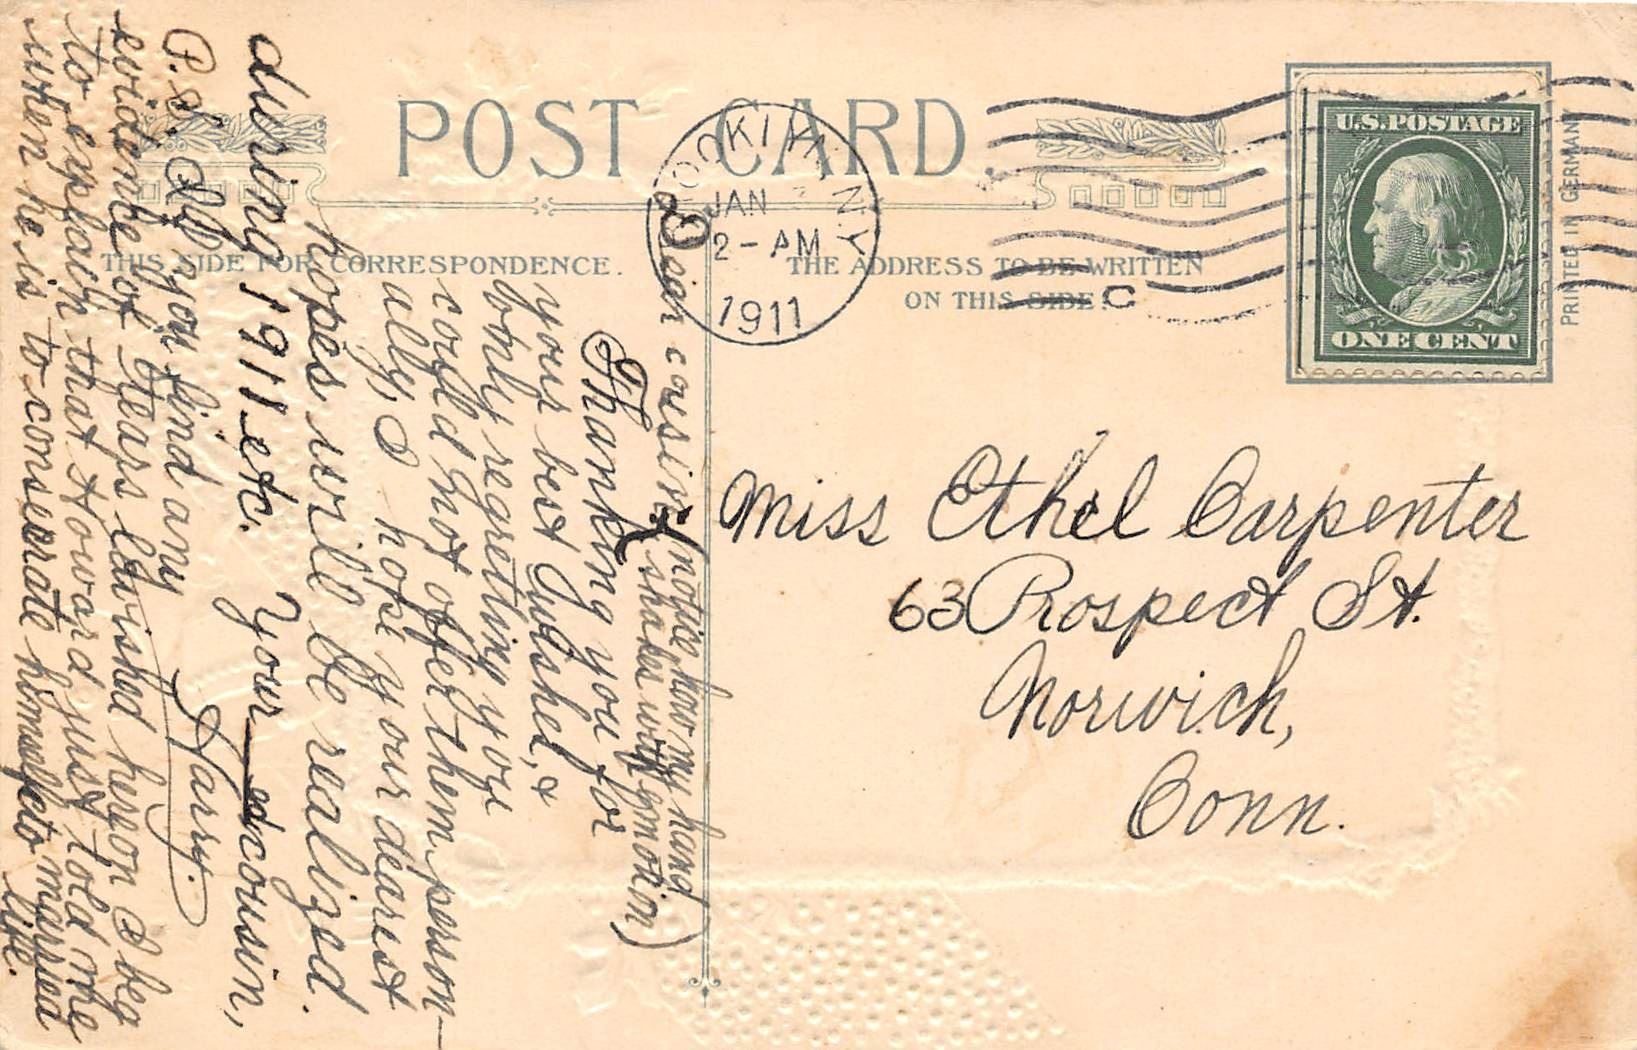 POST CARD
THIS SIDE FOR CORRESPONDENCE.
THE ADDRESS TO BE WRITTEN
ON THIS SIDE.
BROOKLYN, N.Y.
JAN
2-AM
1911
C
U.S. POSTAGE
ONE CENT
PRINTED IN GERMANY
Miss Ethel Carpenter
63 Prospect St.
Norwich,
Conn.
Dear cousin, (notice how my hand
shakes with emotion)
Thanking you for
your best wishes, &
only regretting you
could not offer them person-
ally, I hope your dearest
hopes will be realized
during 1911 etc.
Your cousin,
Harry.
P.S. If you find any
evidence of tears lavished hereon I beg
to explain that Howard just told me
when he is to consecrate himself to married
life.